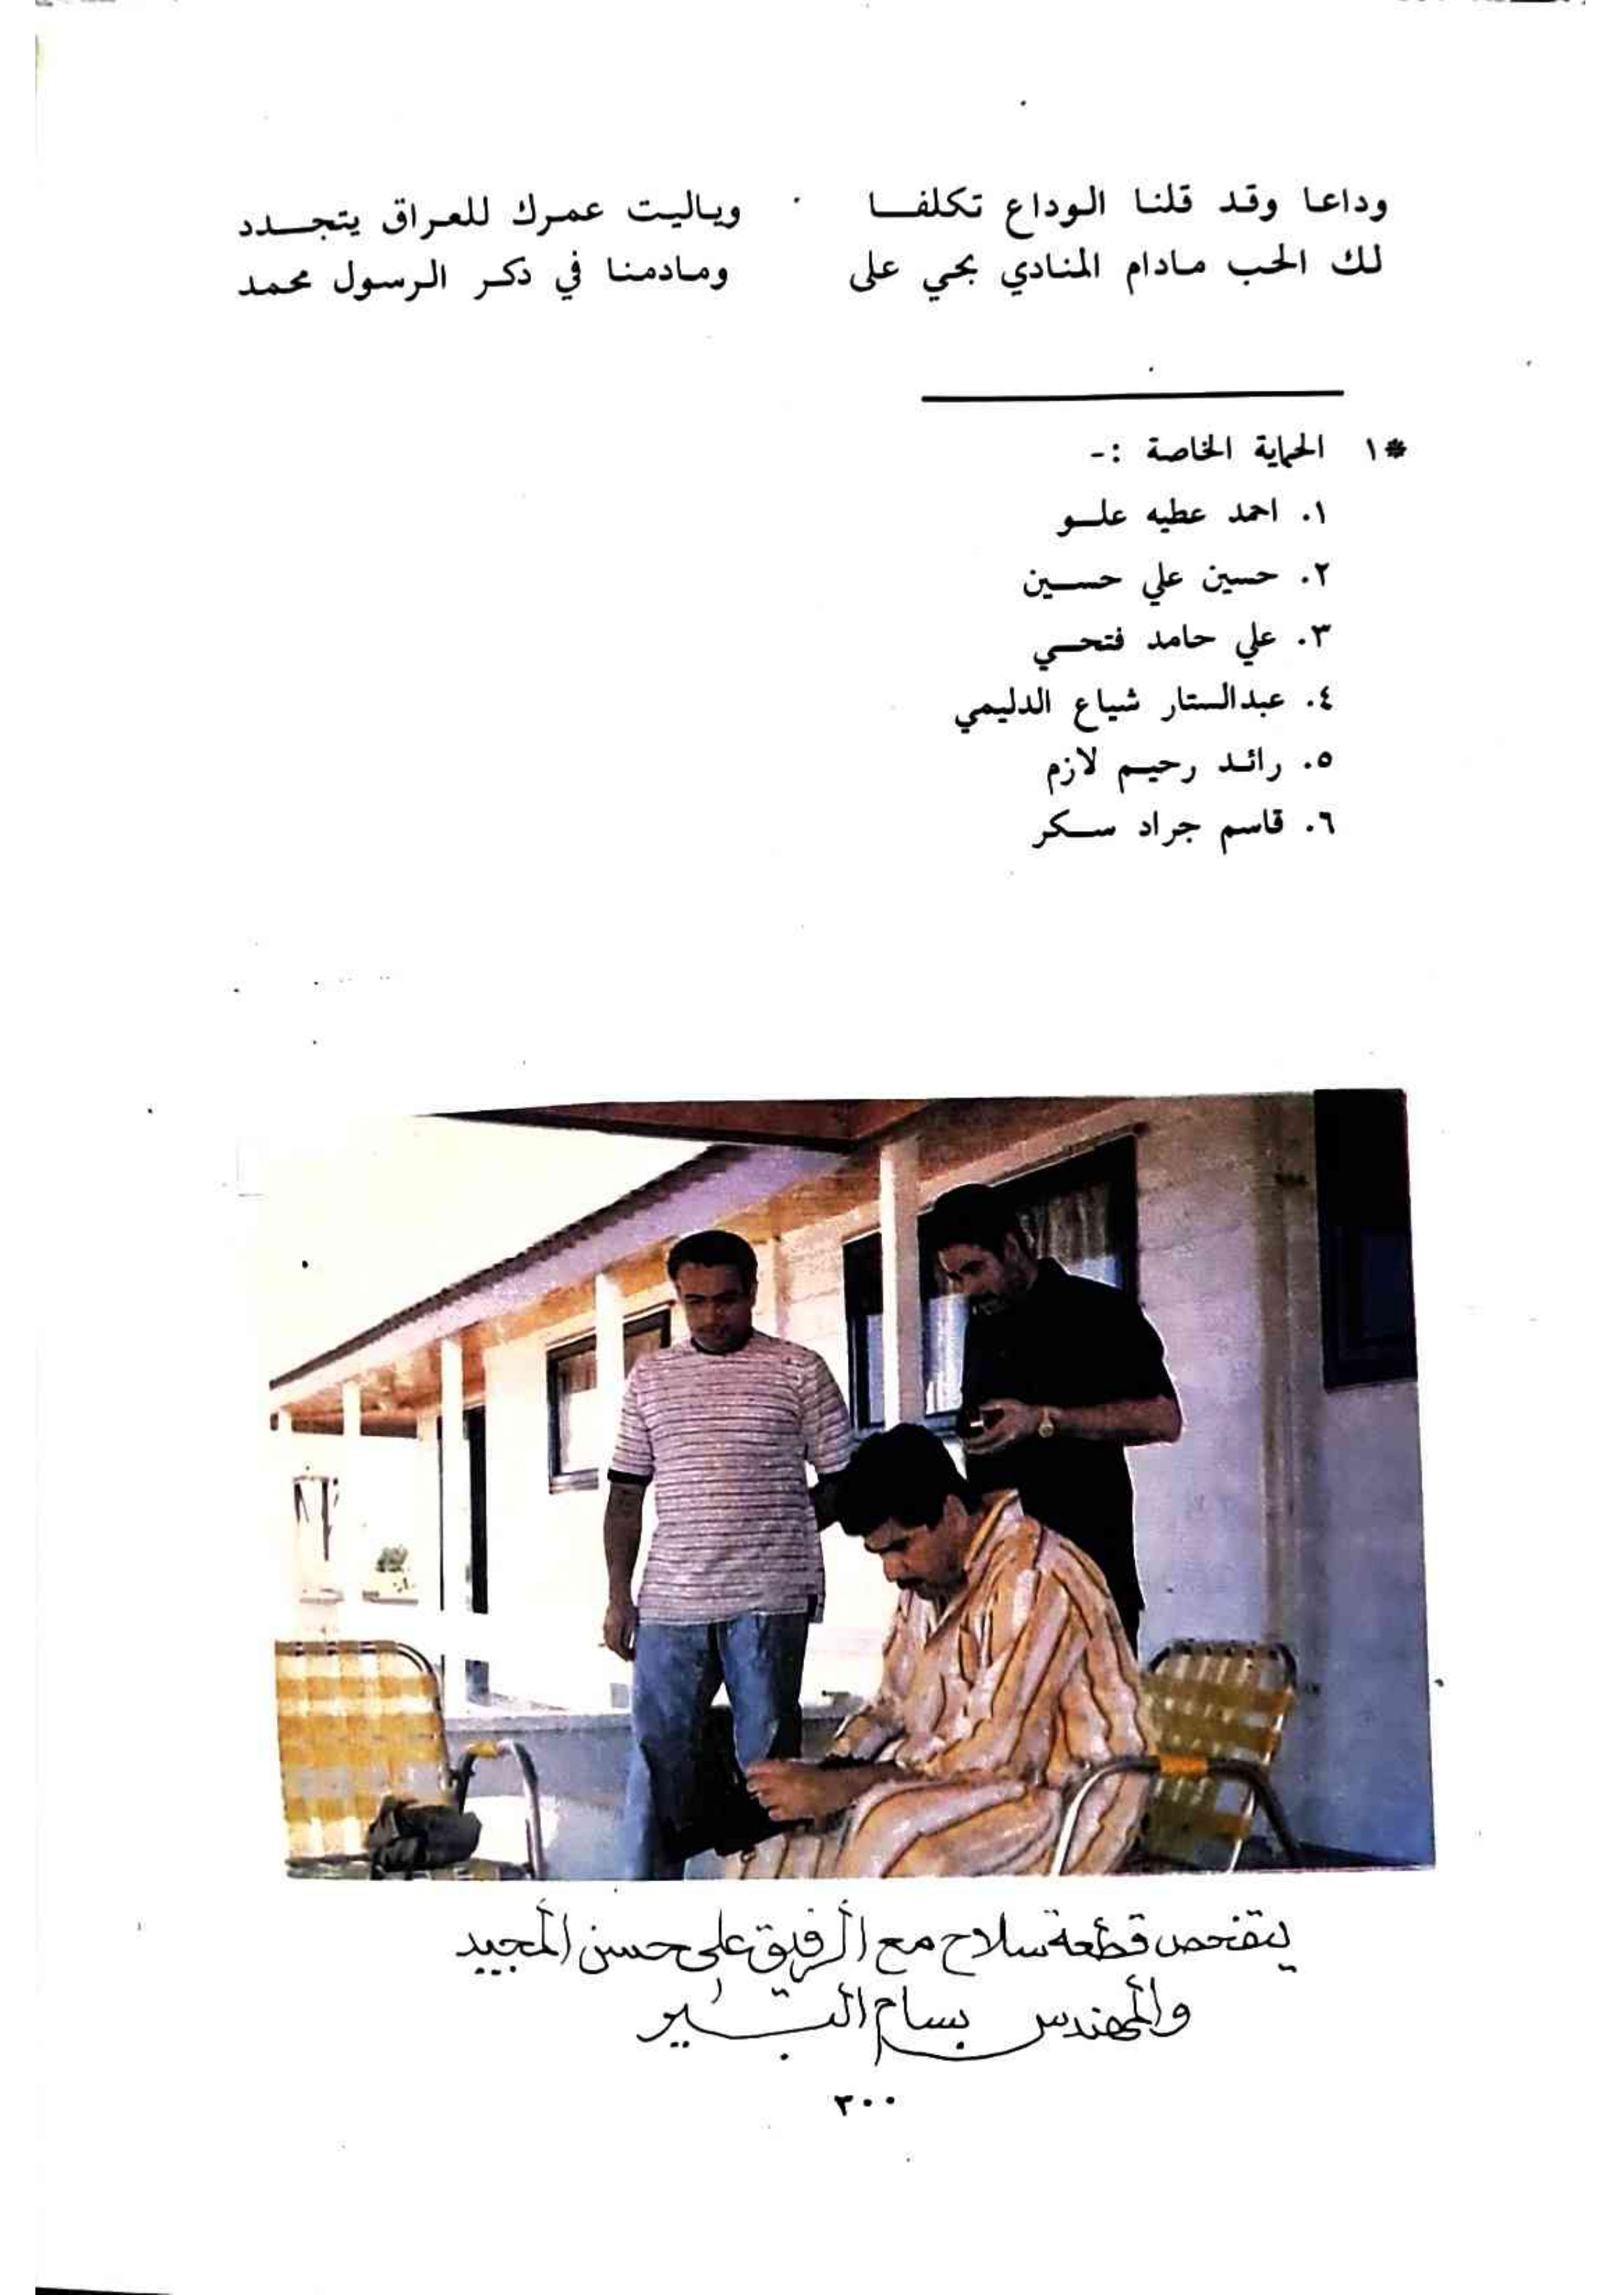 وداعا وقد قلنا الوداع تكلفــا وياليت عمرك للعراق يتجــدد
لك الحب مادام المنادي بحي على ومادمنا في دكر الرسول محمد
*١ الحماية الخاصة :-
١. احمد عطيه علــو
٢. حسين علي حســين
٣. علي حامد فتحــي
٤. عبدالستار شياع الدليمي
٥. رائد رحيم لازم
٦. قاسم جراد سـكر
يتفحص قطعة سلاح مع الرفيق علي حسن المجيد
والمهندس بسام
٣٠٠